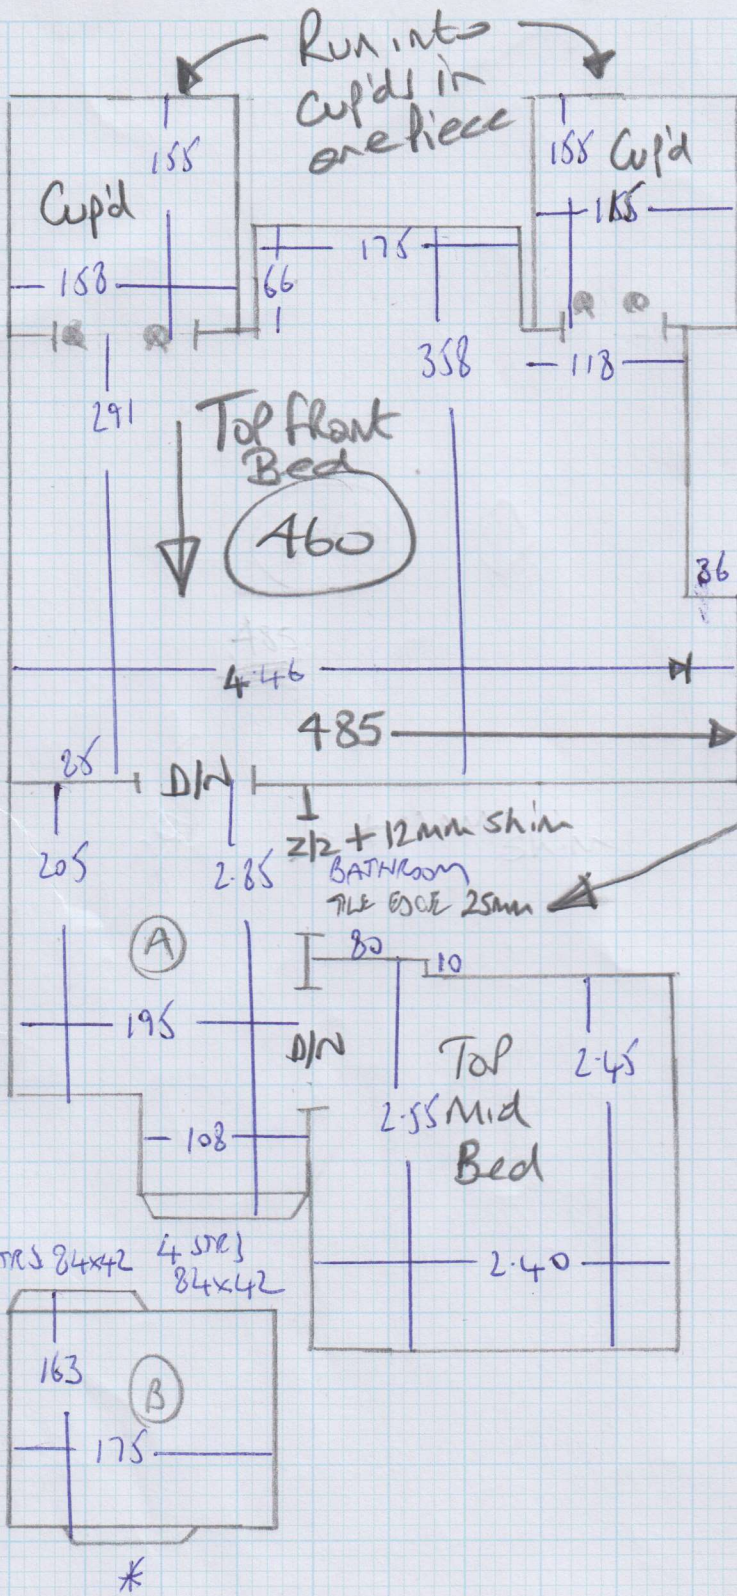 Run into
Cup'ds in
one Piece
155
155
Cup'd
Cup'd
155
158
66
175
291
358
118
Top front
Bed
460
36
4.46
485
25
D/N
Z/2 + 12mm Shim
BATHROOM
TILE EDGE 25mm
205
2.85
A
80
10
195
D/N
Top
Mid
Bed
2.45
2.55
108
84x42
4 STRS
84x42
2.40
163
B
175
*